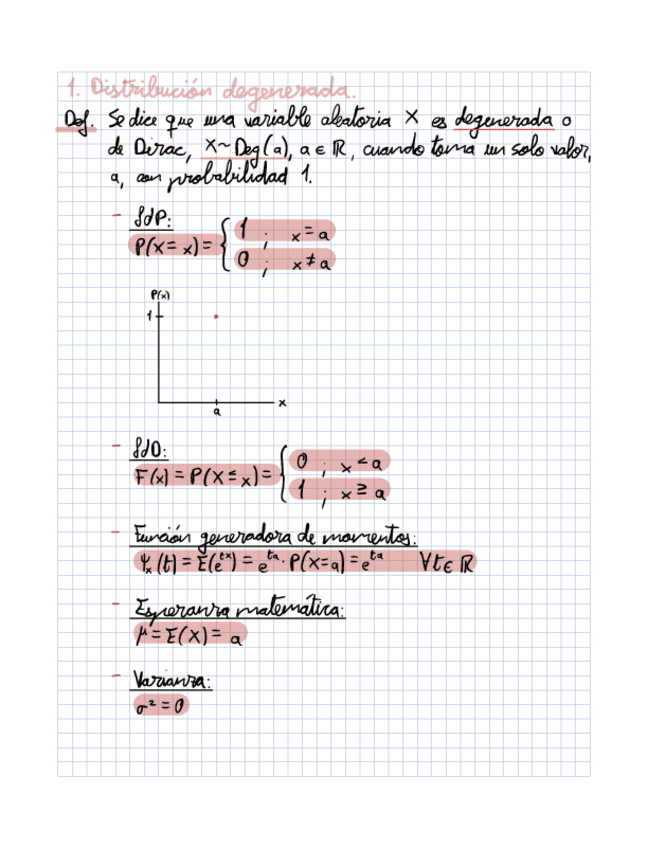 1. Distribución degenerada.
Def. Se dice que una variable aleatoria X es degenerada o
de Dirac, X~Deg(a), a ∈ ℝ, cuando toma un solo valor,
a, con probabilidad 1.
- fdP:
P(X=x) = { 1 ; x = a
0 ; x ≠ a
P(x)
1
x
a
- fdD:
F(x) = P(X ≤ x) = { 0 ; x < a
1 ; x ≥ a
- Función generadora de momentos:
Ψₓ(t) = E(eᵗˣ) = eᵗᵃ · P(X=a) = eᵗᵃ ∀t ∈ ℝ
- Esperanza matemática:
μ = E(X) = a
- Varianza:
σ² = 0